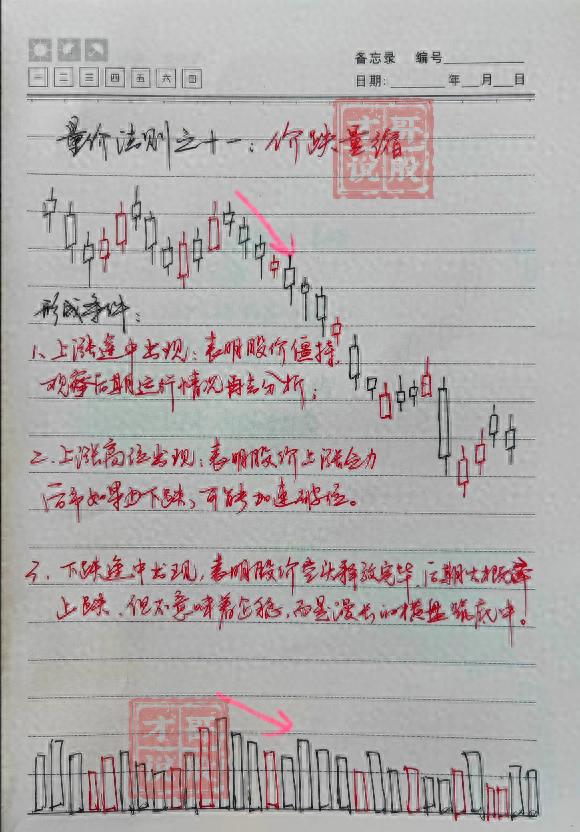 备忘录 编号
一 二 三 四 五 六 日
日期: 年 月 日
量价法则之十一：价跌量缩
才哥说股
形成条件：
1、上涨途中出现：表明股价僵持
观察后期运行情况再去分析；
二、上涨高位出现：表明股价上涨乏力
后市如果再下跌，可能加速破位。
3、下跌途中出现，表明股价空头释放完毕 后期大概率
止跌，但不意味着企稳，而是漫长的横盘筑底中！
才哥说股